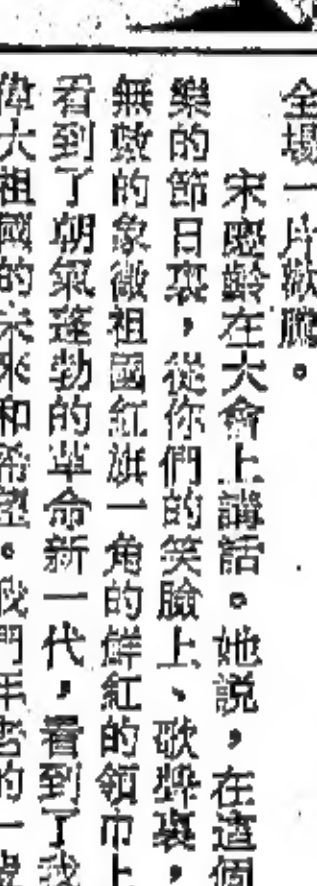 全場一片歡騰。
宋慶齡在大會上講話。她説，在這個
樂的節目裏，從你們的笑臉上、歌聲裏，
無數的象徵祖國紅旗一角的鮮紅的領巾上
看到了朝氣蓬勃的革命新一代，看到了我
偉大祖國的未來和希望。我們年老的一輩